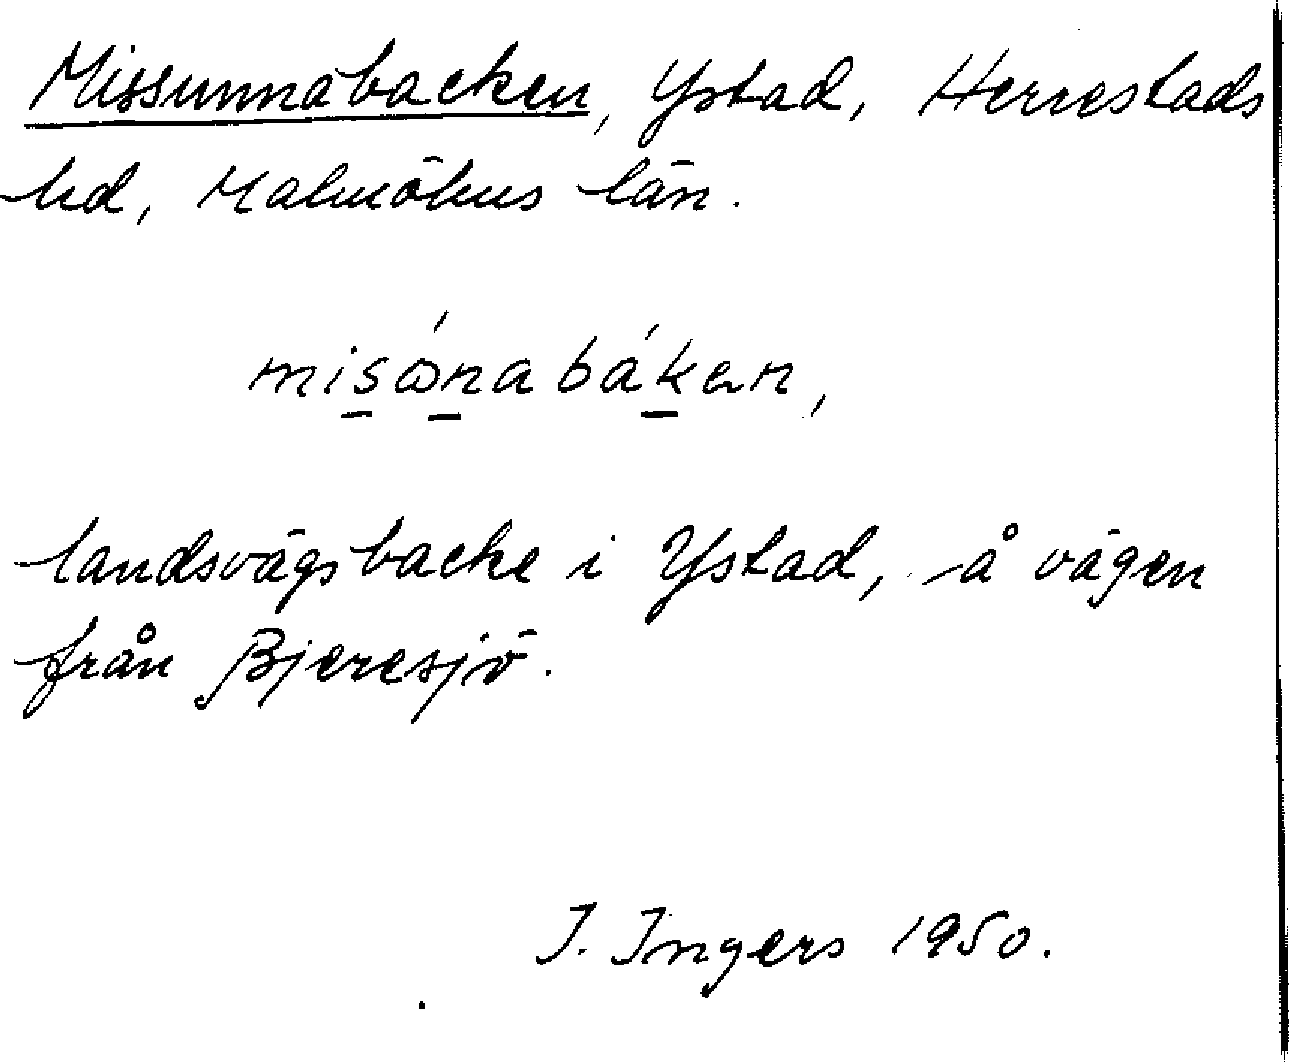 Missunnabacken, Ystad, Herrestads
hd, Malmöhus län.
misώnabákan,
landsvägsbacke i Ystad, å vägen
från Bjeresjö.
I. Ingers 1950.